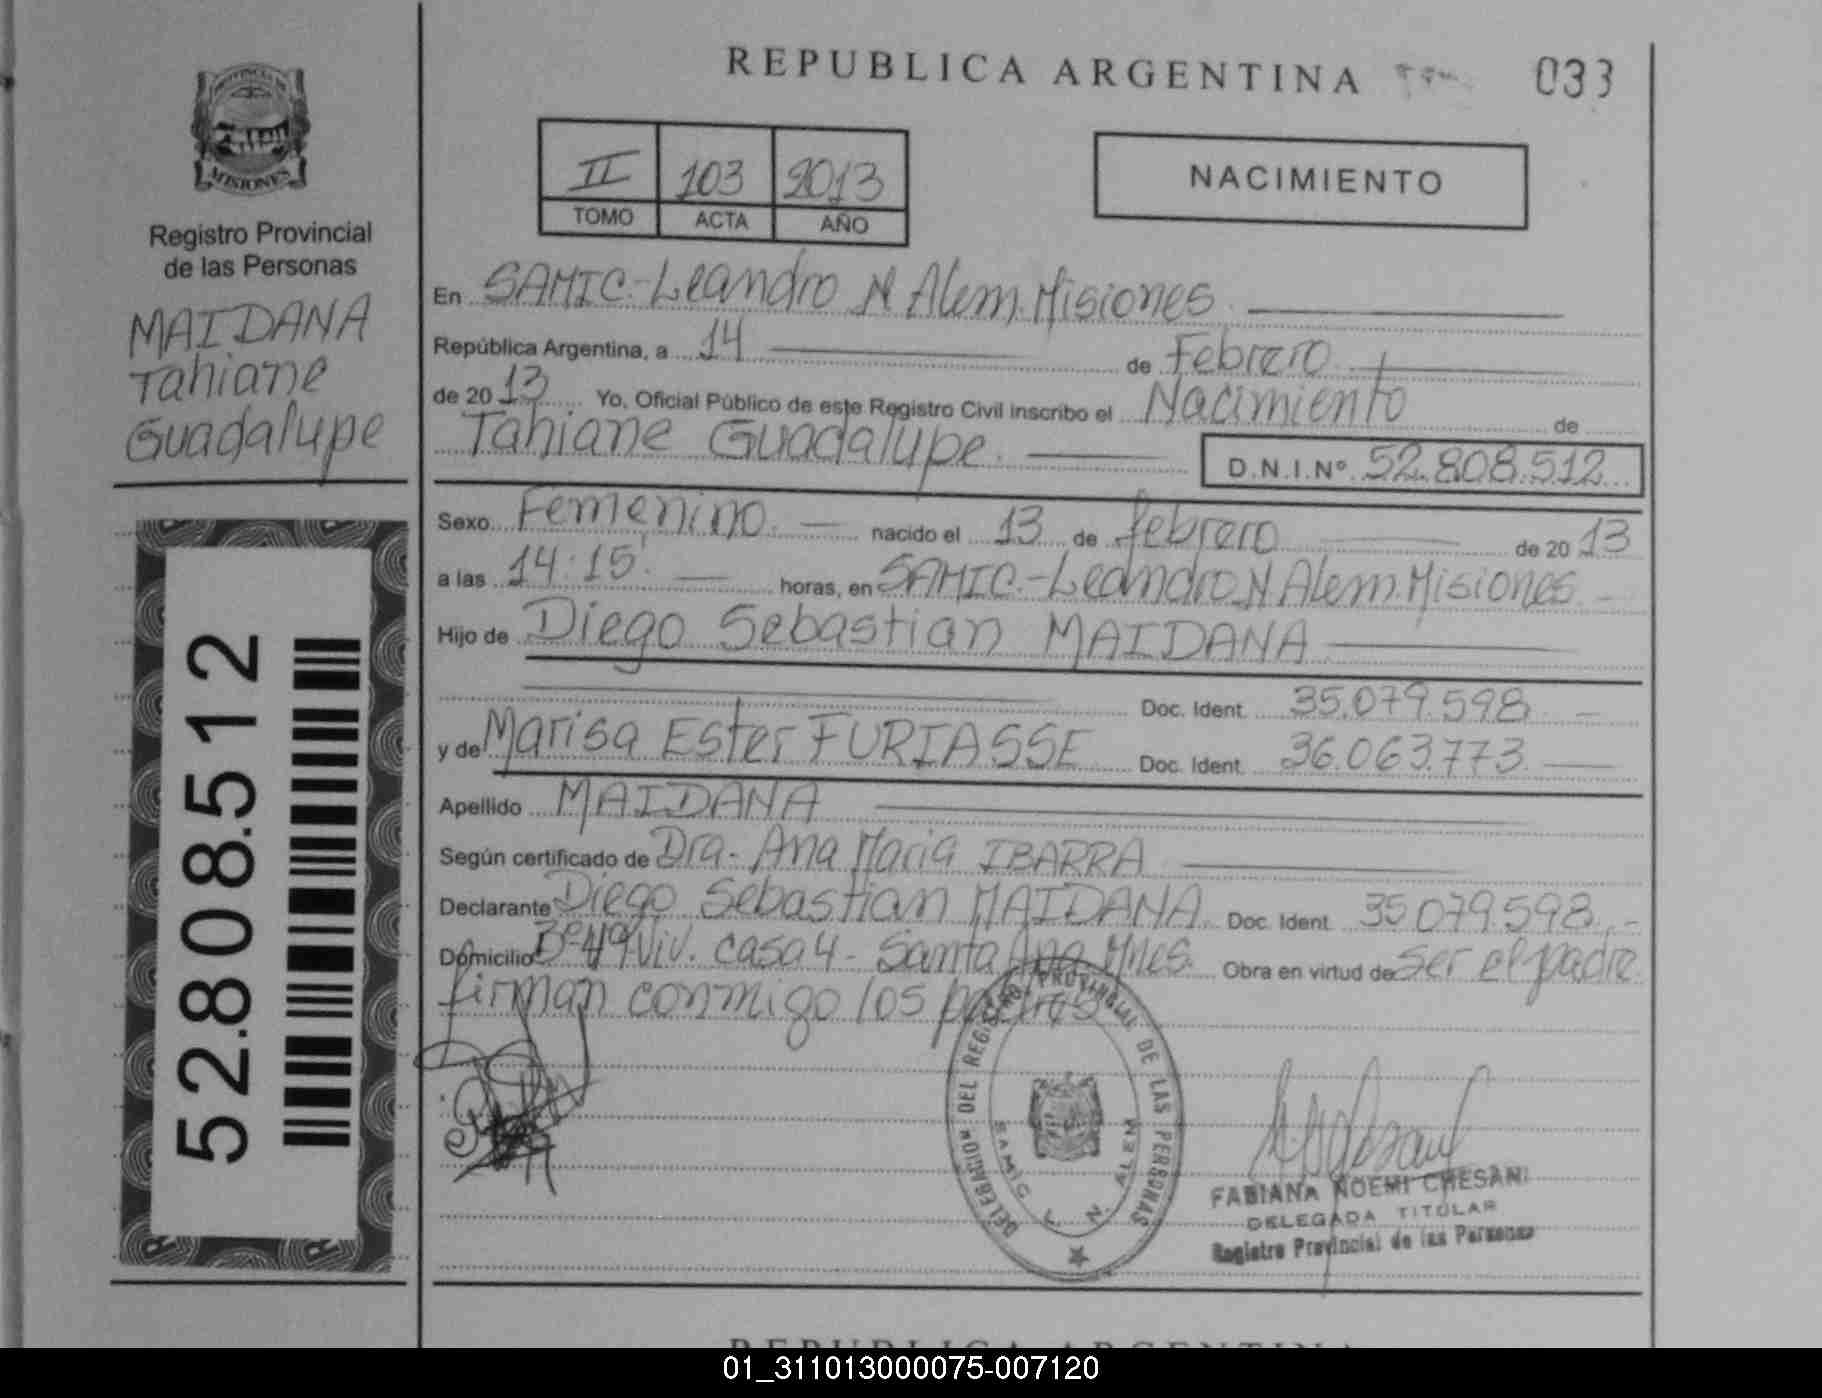 REPUBLICA ARGENTINA
033
PROVINCIA DE
MISIONES
Registro Provincial
de las Personas
MAIDANA
Tahiane
Guadalupe
52.808.512
II 103 2013
TOMO ACTA AÑO
NACIMIENTO
En SAMIC.-Leandro N Alem. Misiones
República Argentina, a 14 de Febrero
de 2013 Yo, Oficial Público de este Registro Civil inscribo el Nacimiento de
Tahiane Guadalupe. D.N.I.Nº 52.808.512
Sexo Femenino. nacido el 13 de febrero de 2013
a las 14:15' horas, en SAMIC.-Leandro N Alem. Misiones
Hijo de Diego Sebastian MAIDANA
Doc. Ident. 35.079.598
y de Marisa Ester FURIASSE Doc. Ident. 36.063.773
Apellido MAIDANA
Según certificado de Dra- Ana Maria IBARRA
Declarante Diego Sebastian MAIDANA Doc. Ident. 35079.598
Domicilio Bº 49 Viv. casa 4 - Santa Ana. Mnes. Obra en virtud de ser el padre
firman conmigo los padres
DELEGACION DEL REGISTRO PROVINCIAL DE LAS PERSONAS
SAMIC L. N. ALEM
FABIANA NOEMI CHESANI
DELEGADA TITULAR
Registro Provincial de las Personas
REPUBLICA ARGENTINA
01_311013000075-007120